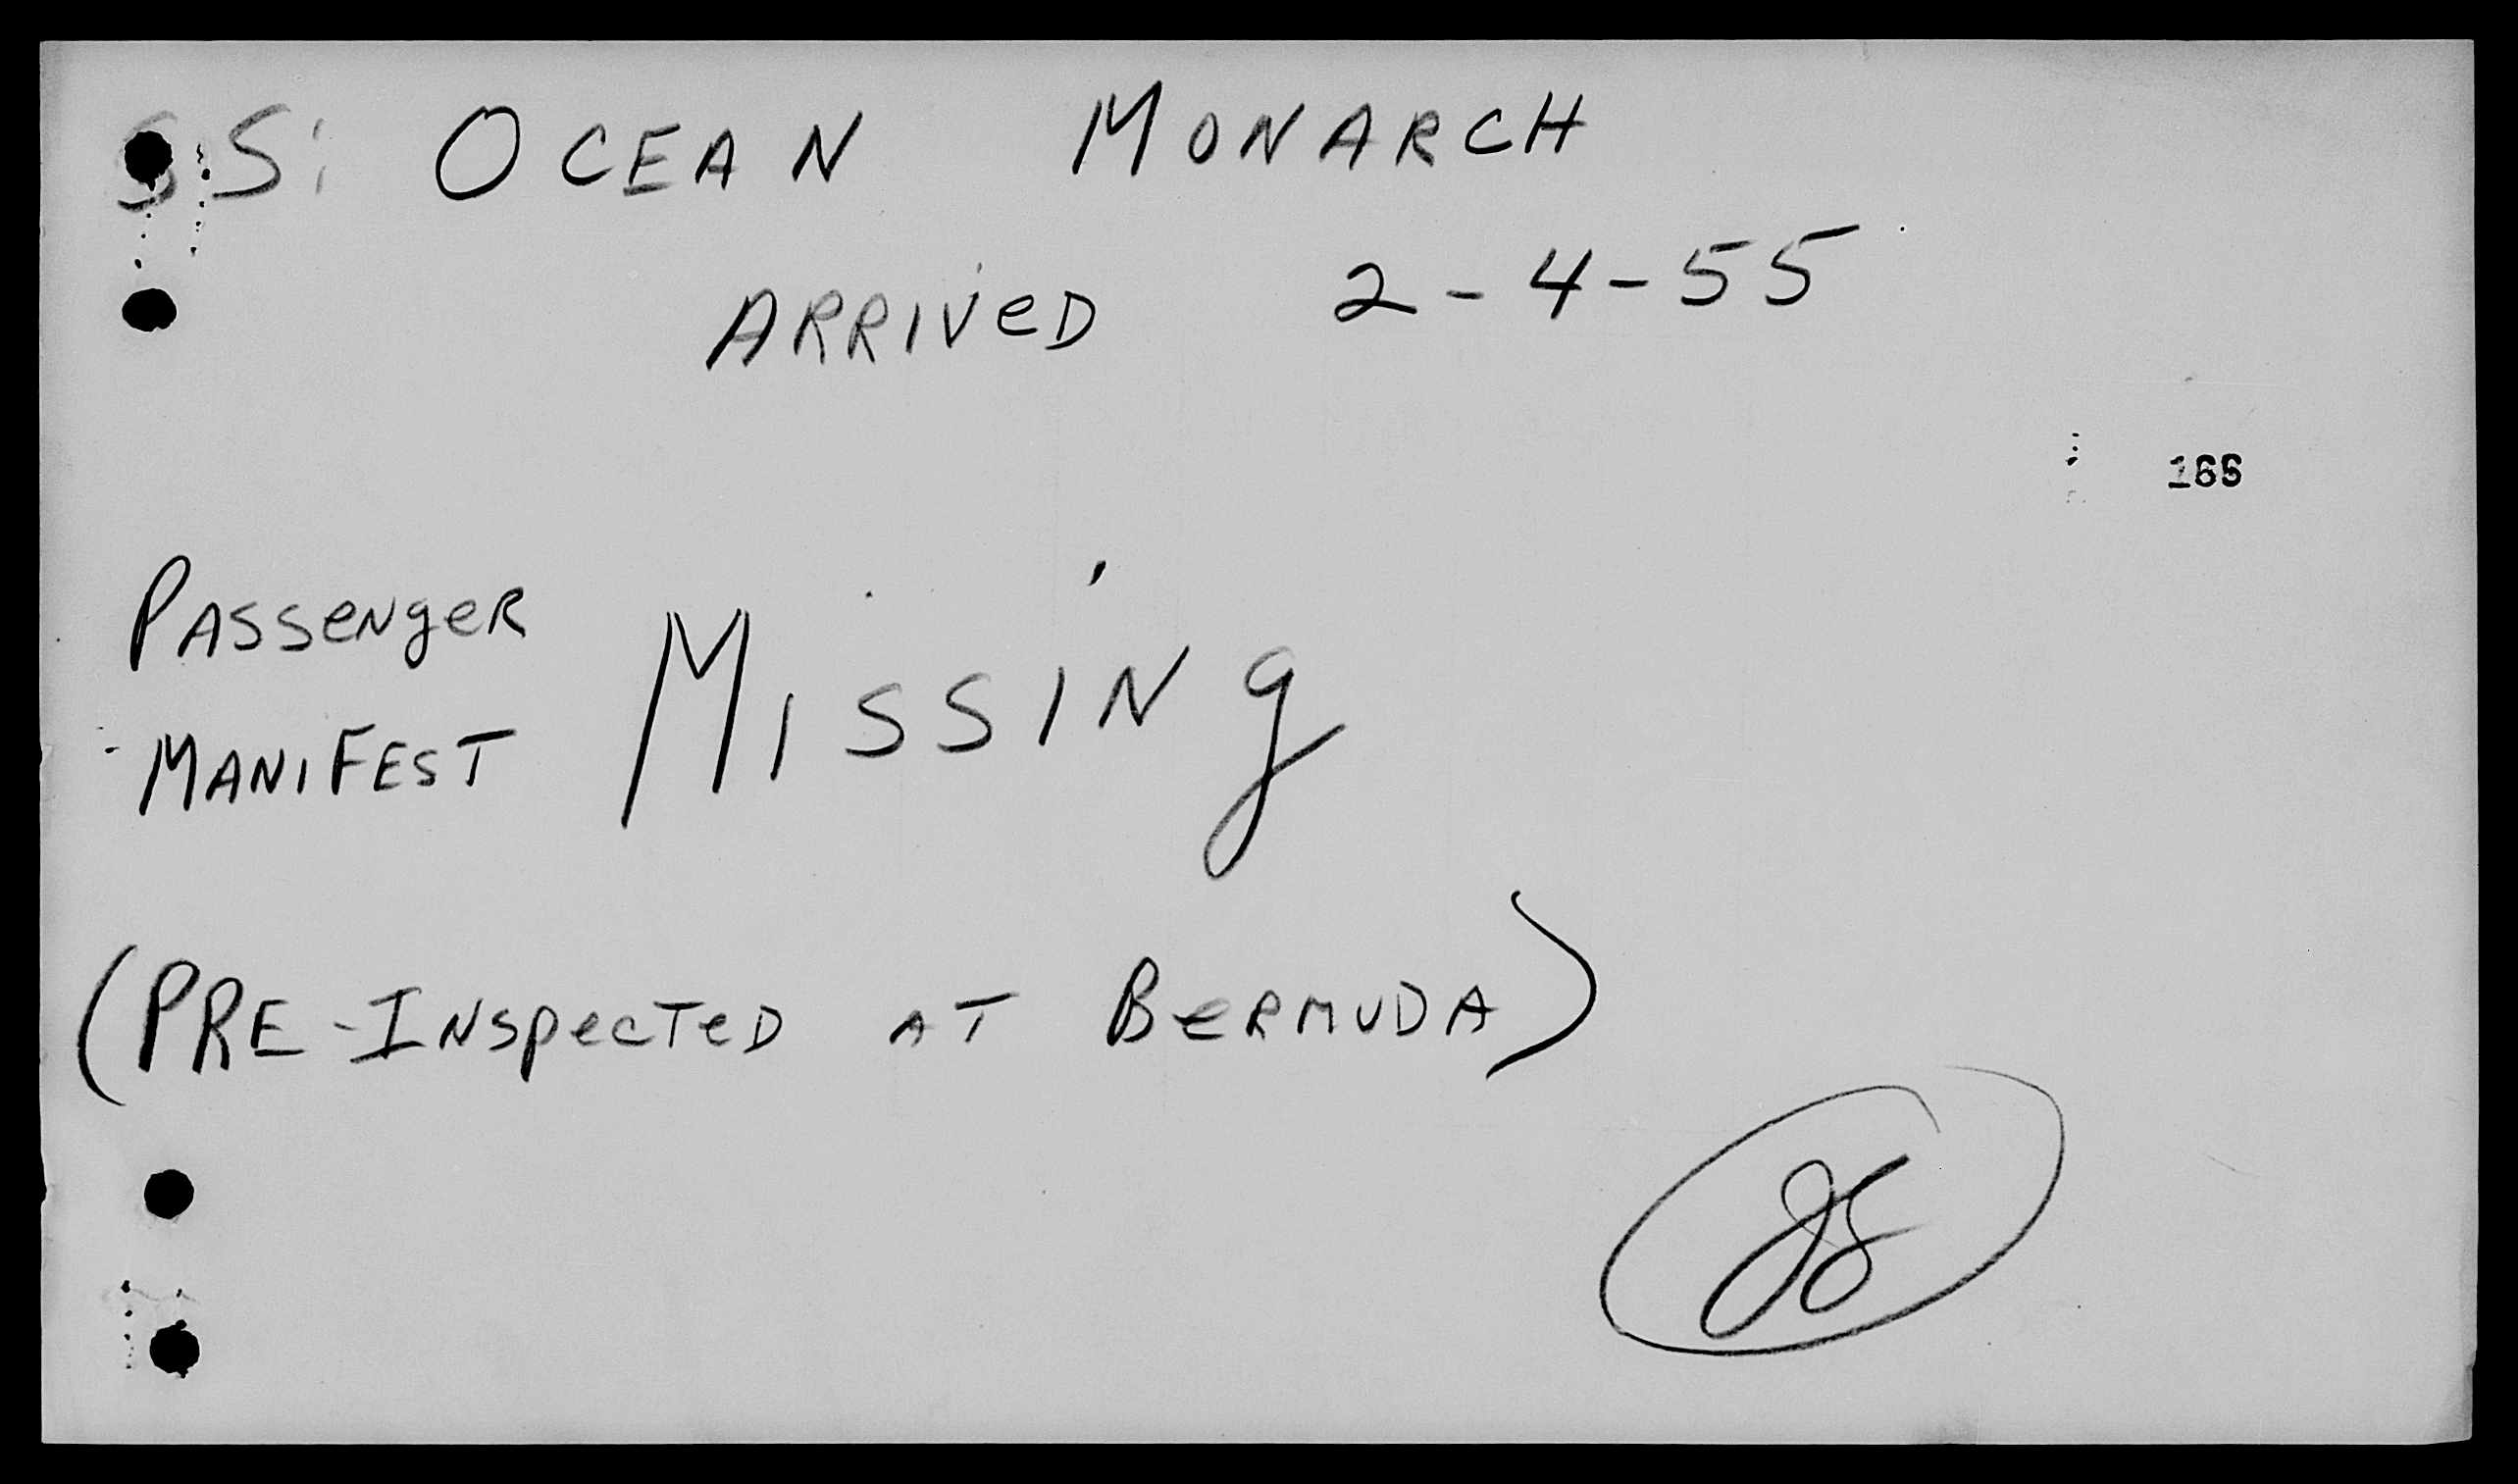 SS: OCEAN MONARCH
ARRIVeD 2-4-55
PASSeNgeR
MANIFEST MISSINg
(PRE-INSpecTeD AT BeRMUDA)